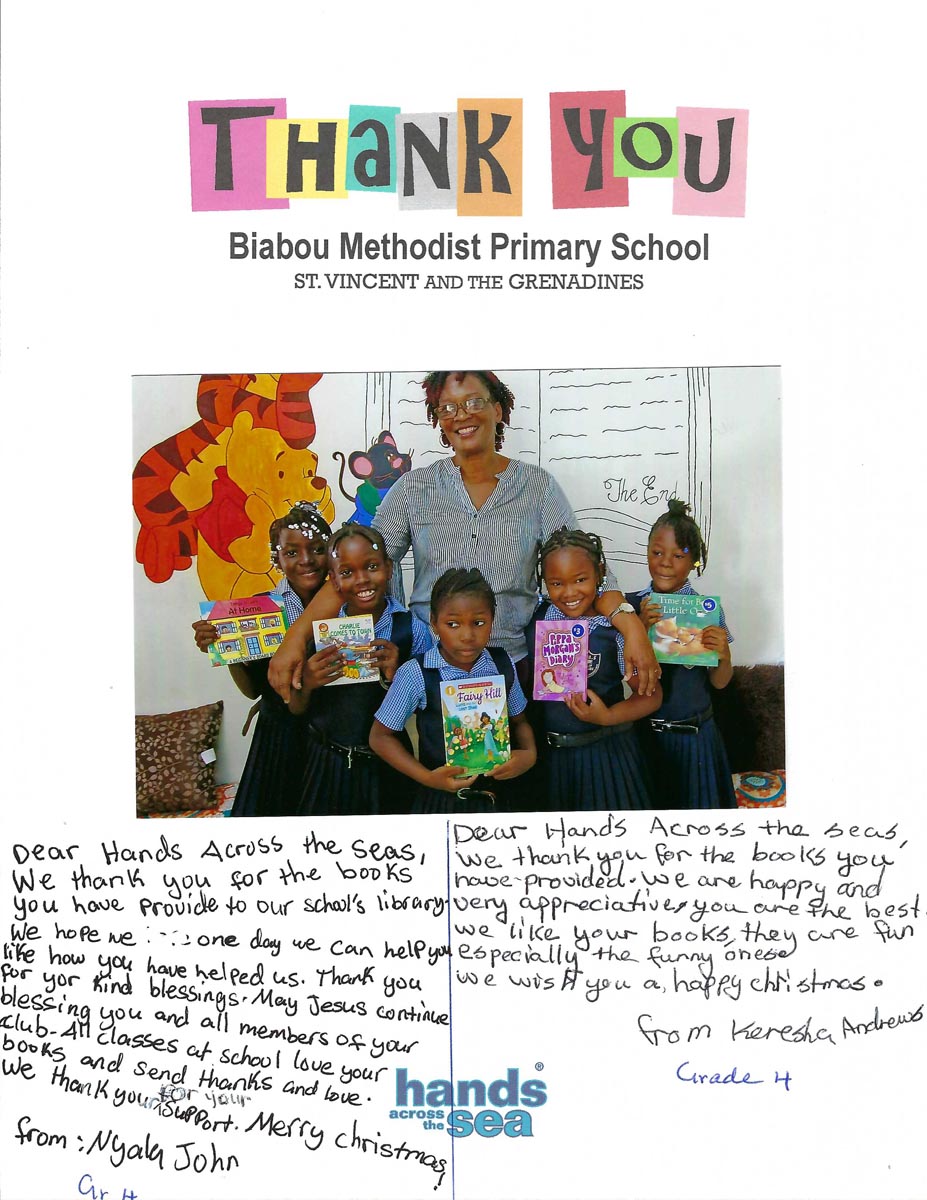 THANK YOU
Biabou Methodist Primary School
ST. VINCENT AND THE GRENADINES
The End
At Home
CHARLIE
COMES TO TOWN
1
Fairy Hill
#3
PIPPA
MORGAN'S
DIARY
Time for
#5
Little
Dear Hands Across the seas,
We thank you for the books
you have provide to our school's library.
We hope we one day we can help you
like how you have helped us. Thank you
for yor kind blessings. May Jesus continue
blessing you and all members of your
club. All classes at school love your
books and send thanks and love.
We thank you for your
support. Merry christmas!
from: Nyala John
Gr 4
Dear Hands Across the seas,
we thank you for the books you
have provided. we are happy and
very appreciative, you are the best.
we like your books, they are fun
especially the funny ones
we wish you a, happy christmas.
from Keresha Andrews
Grade 4
hands®
across
the sea